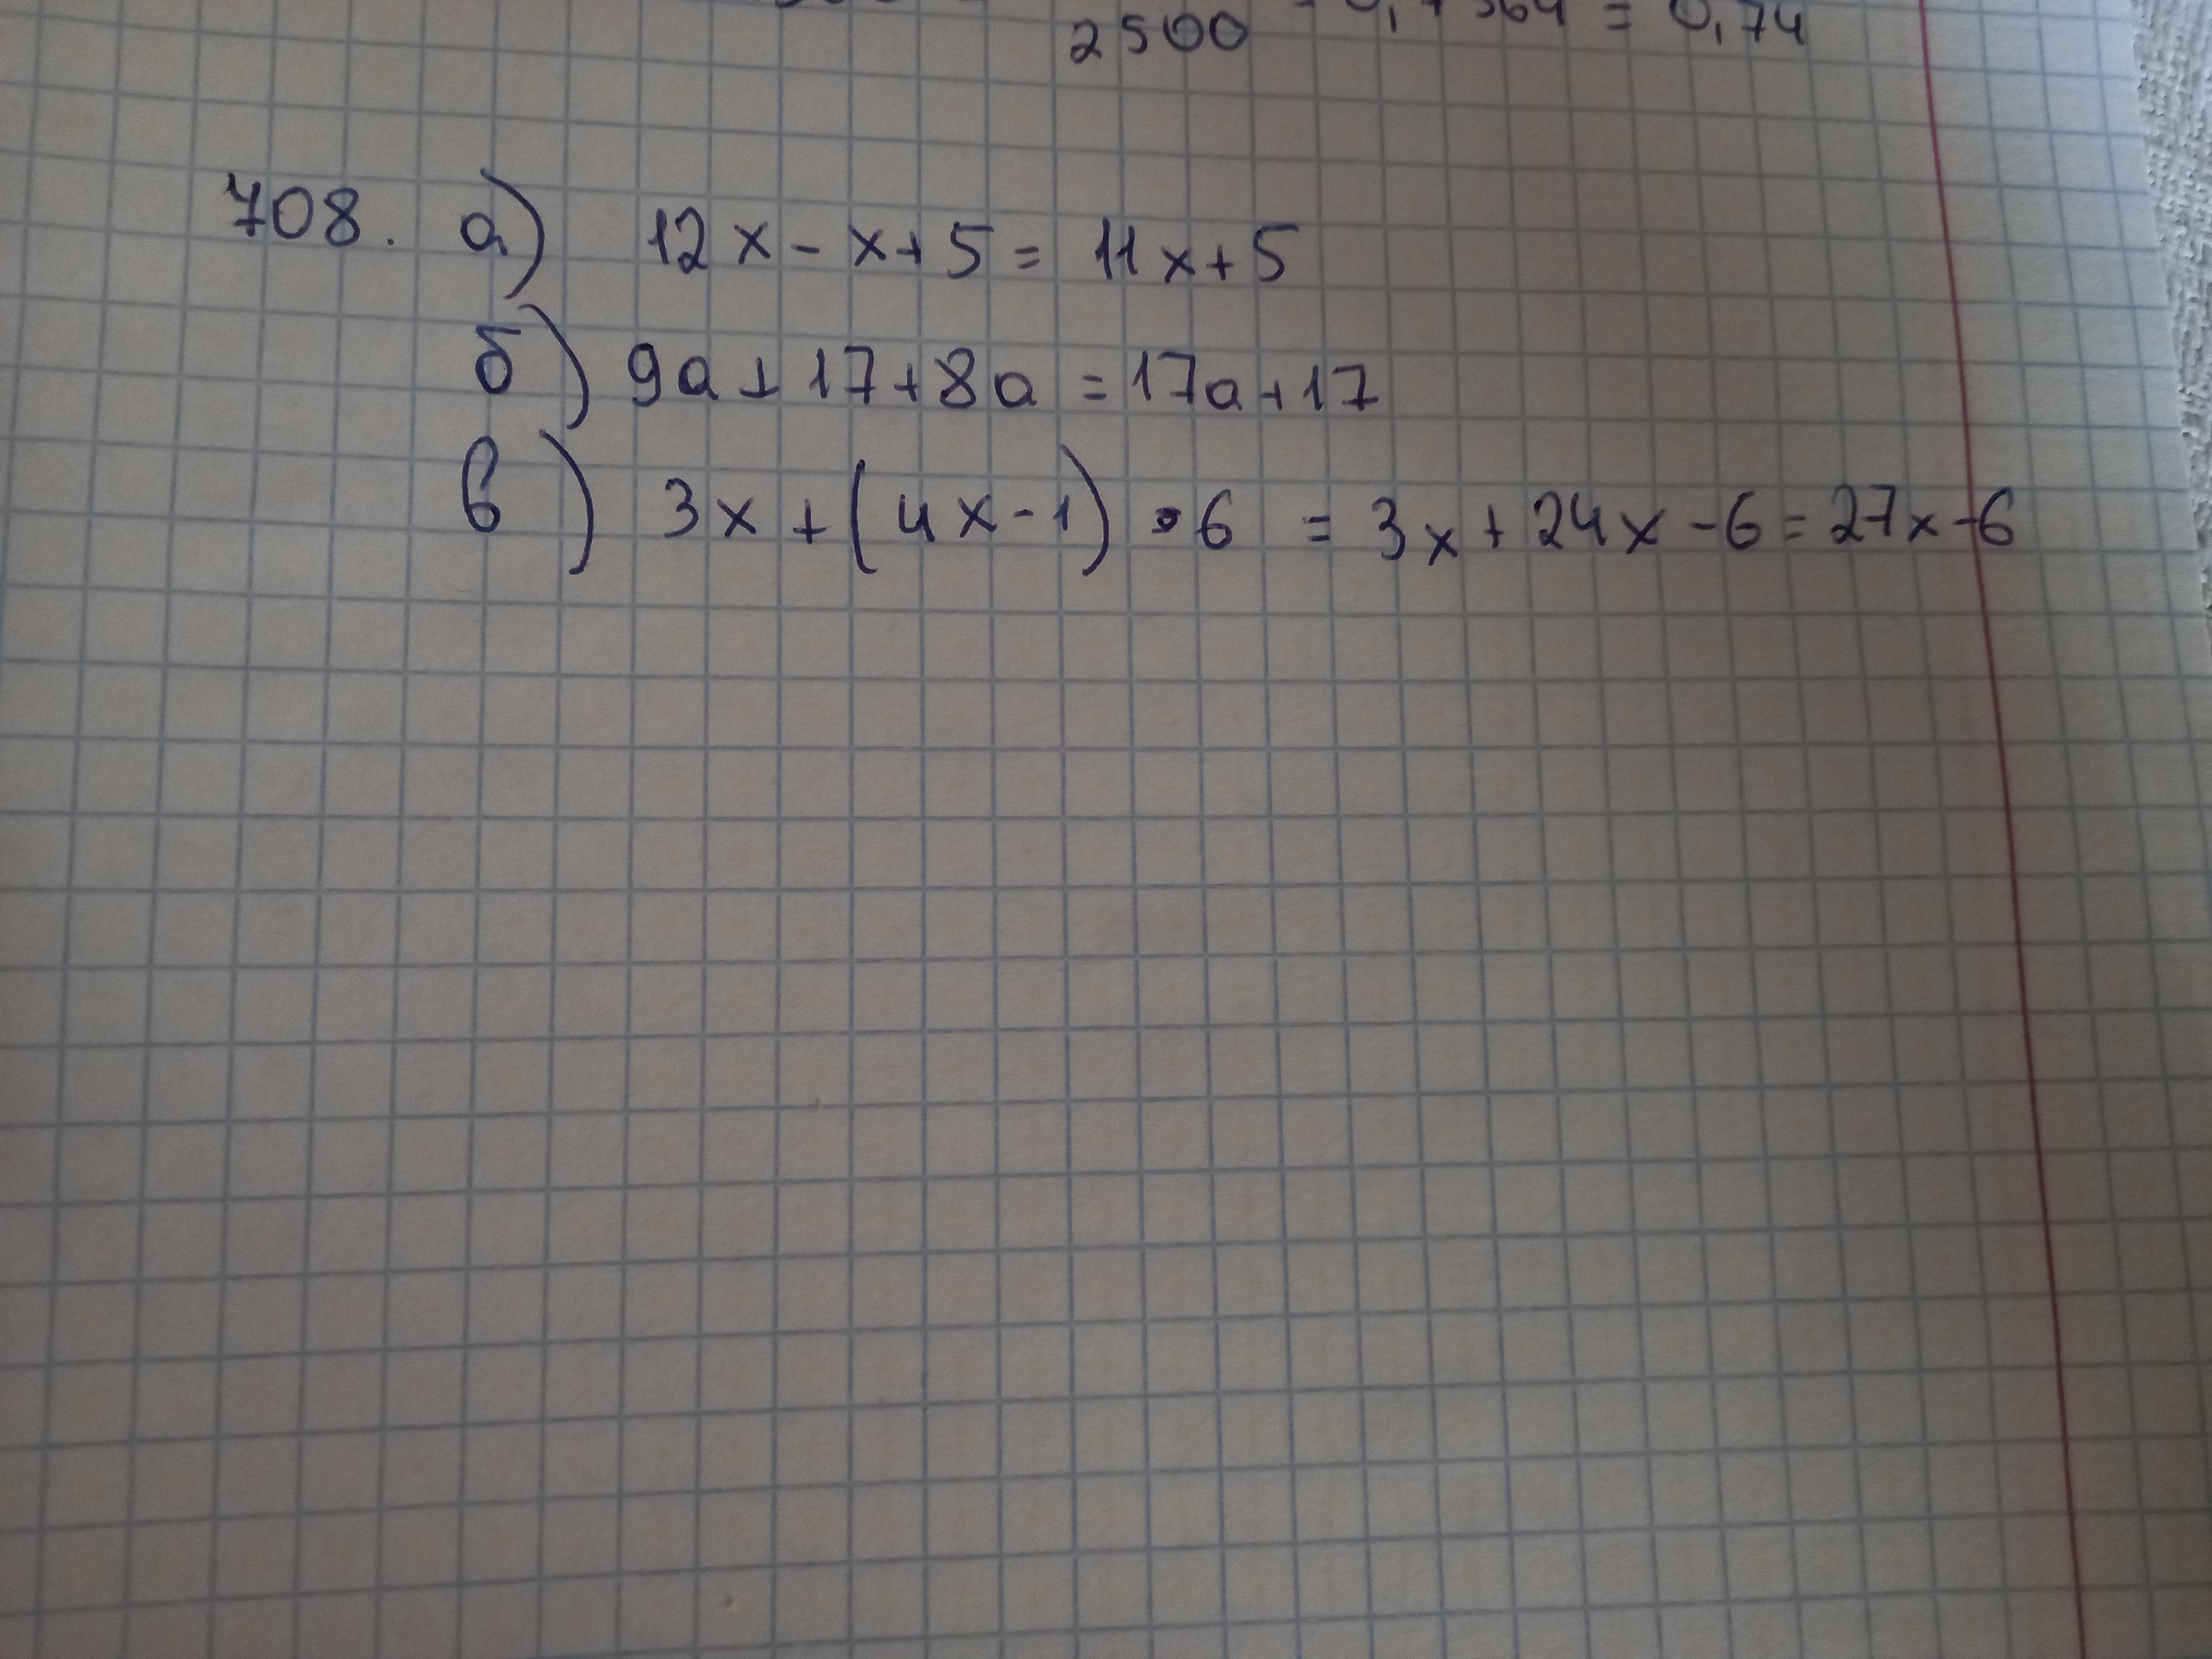 2500 = 0,7364 = 0,74
708. а) 12x - x + 5 = 11x + 5
б) 9a + 17 + 8a = 17a + 17
в) 3x + (4x - 1) · 6 = 3x + 24x - 6 = 27x - 6